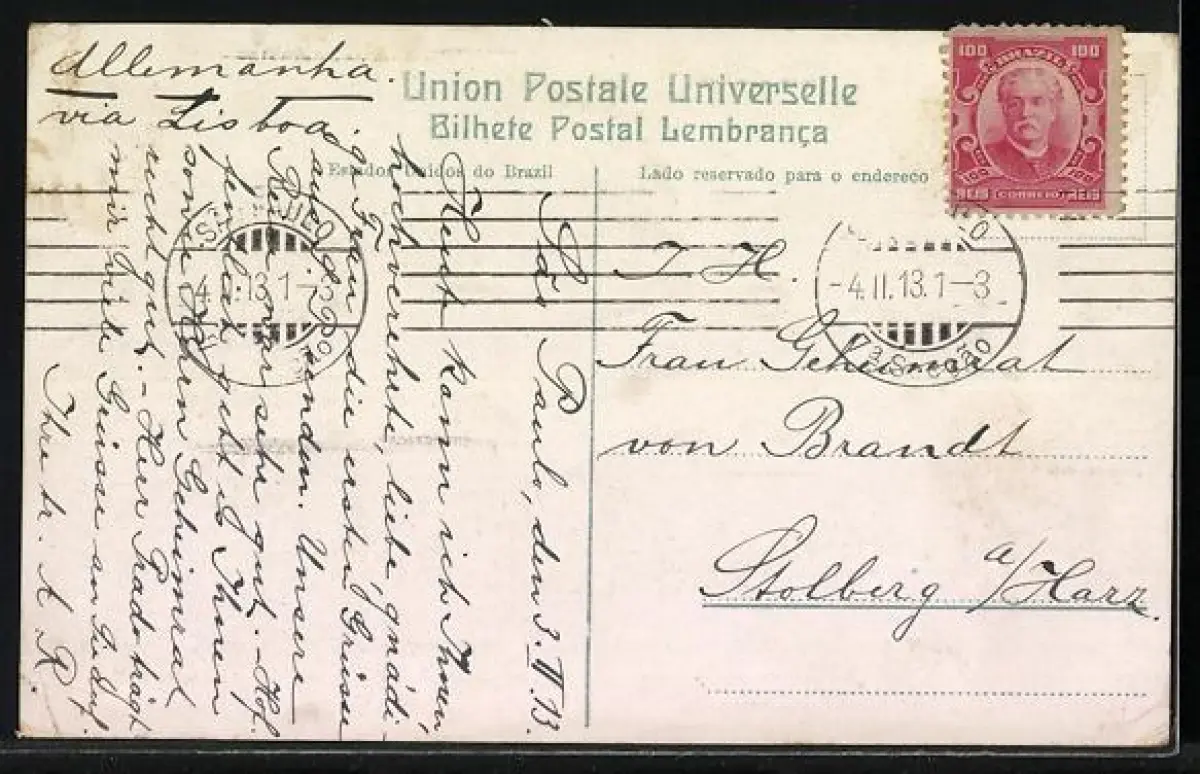 Allemanha.
via Lisboa.
Union Postale Universelle
Bilhete Postal Lembrança
Estados Unidos do Brazil
Lado reservado para o endereço
100 BRAZIL 100
100 100
REIS CORREIO REIS
-4.II.13.1-3
3ª SECÇÃO
-4.II.13.1-3
I. H.
Frau Geheimrat
von Brandt
Stolberg a/Harz.
São Paulo, den 3. II 13.
Heut kann ich Ihnen,
hochverehrte, liebe, gnädi-
ge Frau die ersten Grüsse
aus senden. Unsere
Reise war sehr gut. - Hof-
fentlich geht es Ihnen
sowie Herrn Geheimrat
recht gut. - Herr Prado trägt
mir viele Grüsse an Sie auf.
Ihre tr. A R.